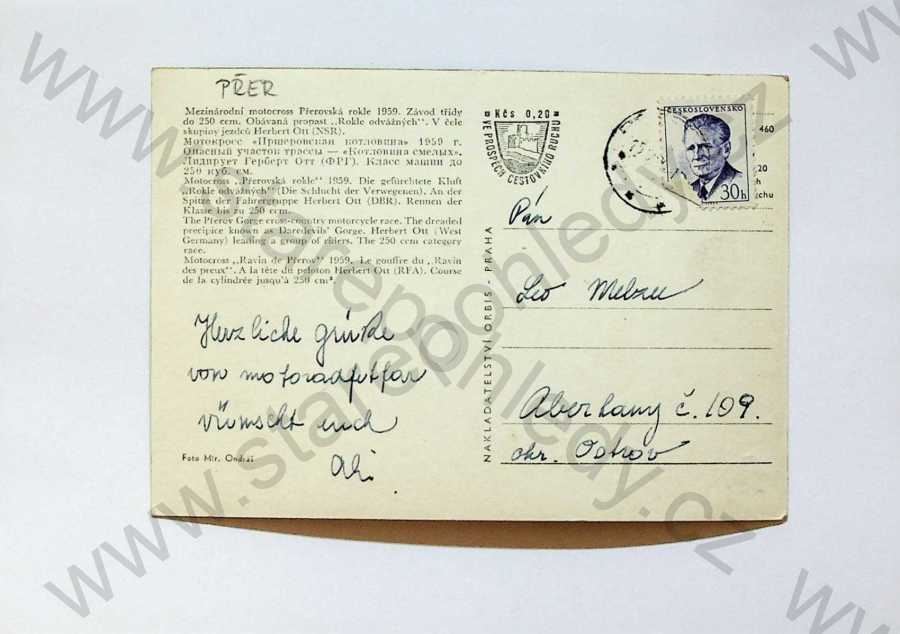 PŘER
Mezinárodní motocross Přerovská rokle 1959. Závod třídy
do 250 ccm. Obávaná propast „Rokle odvážných“. V čele
skupiny jezdců Herbert Ott (NSR).
Мотокросс «Пшеровская котловина» 1959 г.
Опасный участок трассы — «Котловина смелых».
Лидирует Герберт Отт (ФРГ). Класс машин до
250 куб. см.
Motocross „Přerovská rokle“ 1959. Die gefürchtete Kluft
„Rokle odvážných“ (Die Schlucht der Verwegenen). An der
Spitze der Fahrergruppe Herbert Ott (DBR). Rennen der
Klasse bis zu 250 ccm.
The Přerov Gorge cross-country motorcycle race. The dreaded
precipice known as Daredevils' Gorge. Herbert Ott (West
Germany) leading a group of riders. The 250 ccm category
race.
Motocross „Ravin de Přerov“ 1959. Le gouffre du „Ravin
des preux“. A la tête du peloton Herbert Ott (RFA). Course
de la cylindrée jusqu'à 250 cm³.
Herzliche grüße
von motoradfetfar
vünscht euch
Foto Mir. Ondráš
NAKLADATELSTVÍ ORBIS - PRAHA
Kčs 0,20
VE PROSPĚCH CESTOVNÍHO RUCHU
ČESKOSLOVENSKO
30h
460
20
ch
chu
Pán
Leo Melzer
Aberhamy č. 109.
okr. Ostrov
www.starepohledy.cz
www.starepohledy.cz
www.starepohledy.cz